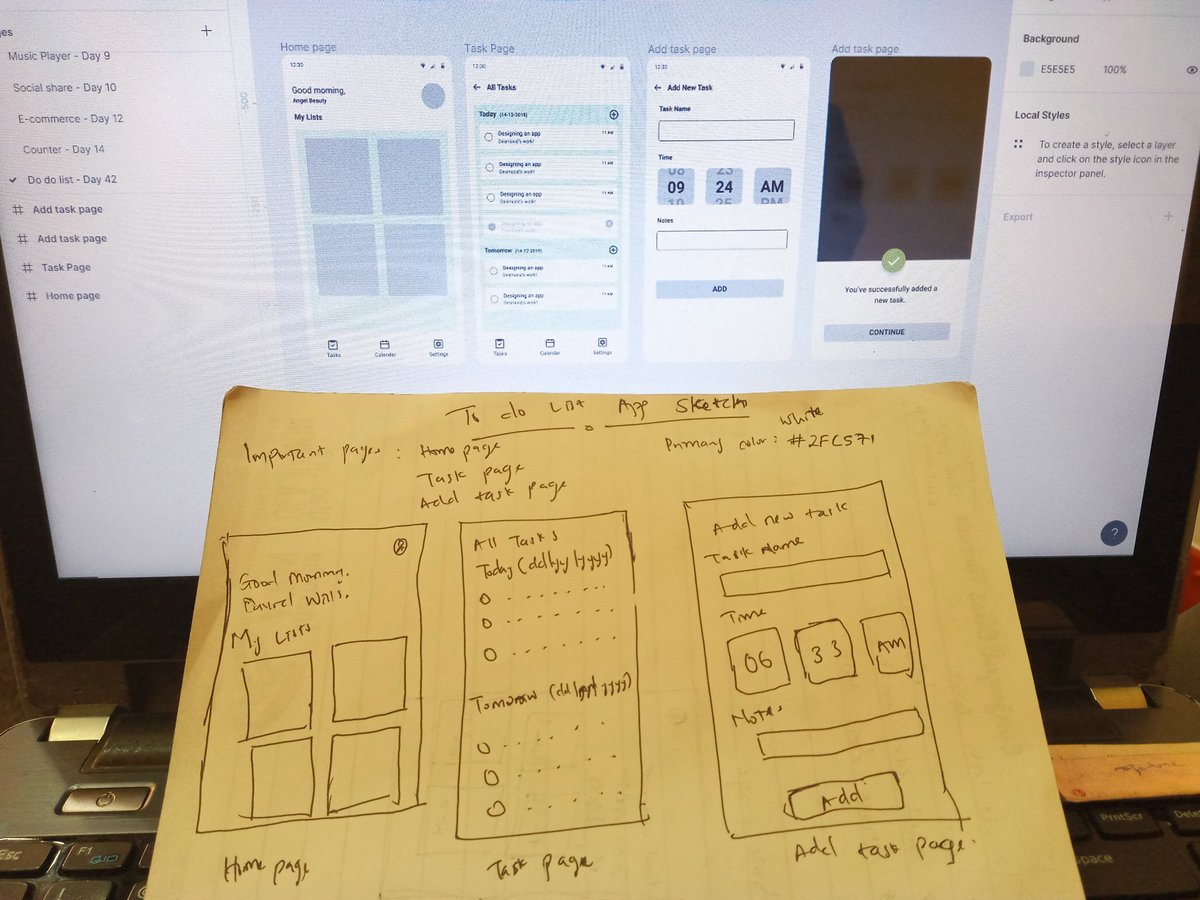 es
Music Player - Day 9
Social share - Day 10
E-commerce - Day 12
Counter - Day 14
Do do list - Day 42
Add task page
Add task page
Task Page
Home page
500
Home page
12:30
Good morning,
Angel Beauty
My Lists
Tasks
Calender
Settings
Task Page
12:30
All Tasks
Today (14-12-2019)
Designing an app
11 AM
Desmond's work!
Designing an app
11 AM
Desmond's work!
Designing an app
11 AM
Desmond's work!
Designing an app
Desmond's work!
Tomorrow (14-12-2019)
Designing an app
11 AM
Desmond's work!
Designing an app
11 AM
Desmond's work!
Tasks
Calender
Settings
Add task page
12:30
Add New Task
Task Name
Time
08 23
09 24 AM
10 25 PM
Notes
ADD
Add task page
You've successfully added a
new task.
CONTINUE
Background
E5E5E5 100%
Local Styles
To create a style, select a layer
and click on the style icon in the
inspector panel.
Export
?
To do List App Sketch
Important pages : Home page
Task page
Add task page
white
Primary color : #2FC571
Good morning,
My Lists
Home page
All Tasks
Today (dd/yy/yyyy)
Tomorrow
Task page
Add new task
Task Name
Time
06 33 AM
Notes
Add
Add task page.
Esc
F1
PrntScr
Dele
space